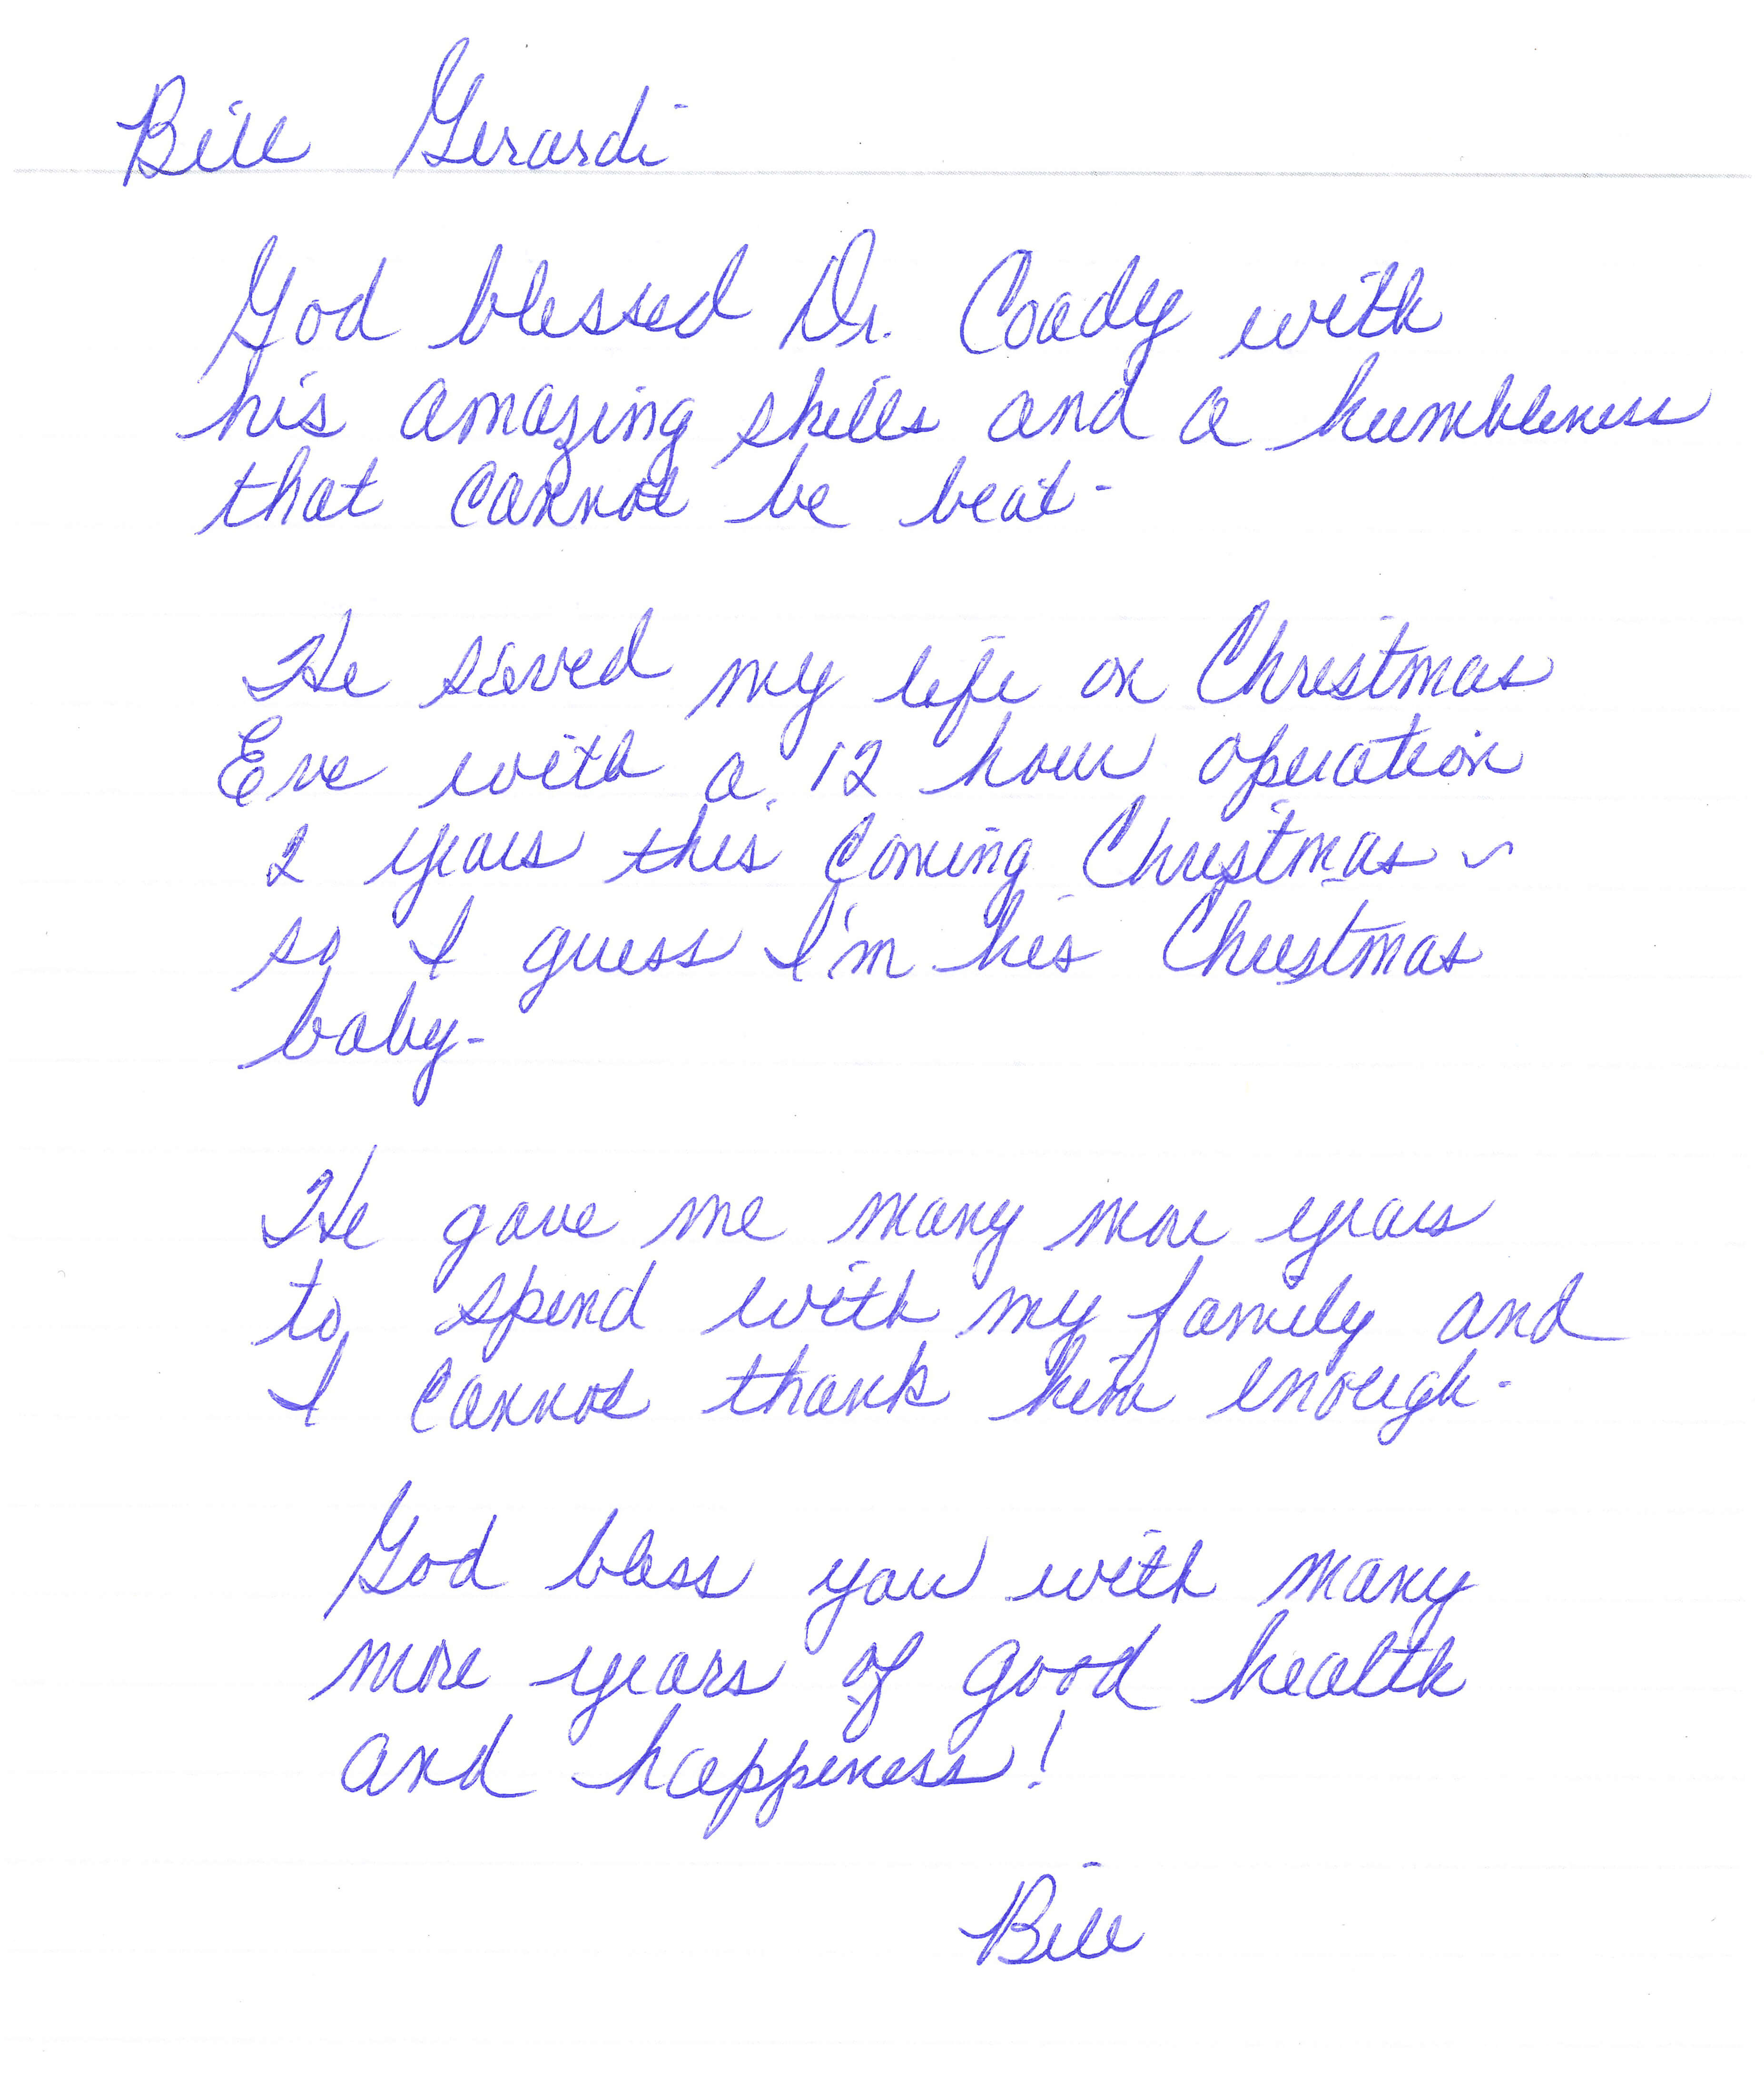 Bill Gerardi
God blessed Dr. Coady with
his amazing skills and a humbleness
that cannot be beat-
He saved my life on Christmas
Eve with a 12 hour operation
2 years this coming Christmas ~
so I guess I'm his Christmas
baby-
He gave me many more years
to spend with my family and
I cannot thank him enough-
God bless you with many
more years of good health
and happiness!
Bill